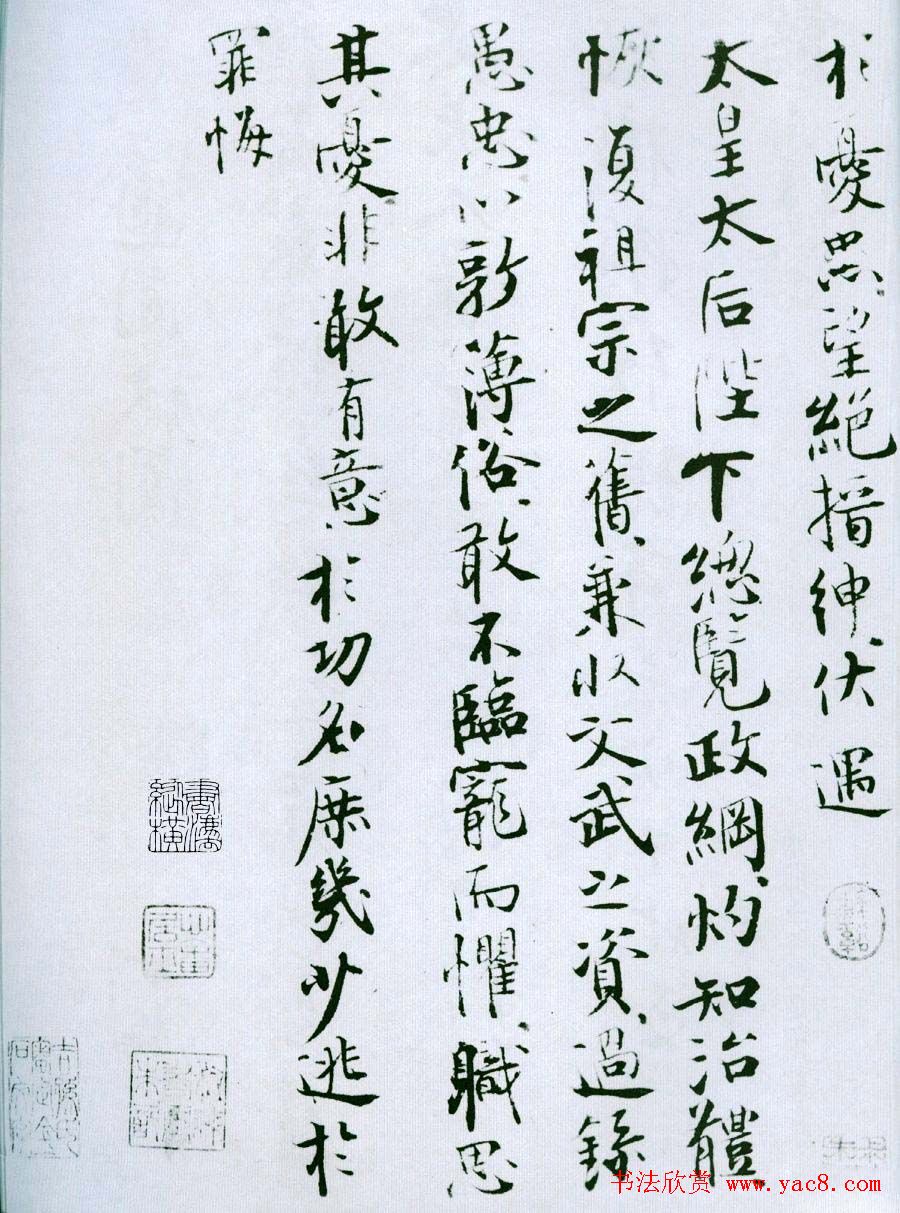 於憂患望絕搢紳伏遇
太皇太后陛下總覽政綱灼知治體
恢復祖宗之舊兼收文武之資過錄
愚忠以敦薄俗敢不臨寵而懼職思
其憂非敢有意於功名庶幾少逃於
罪悔
书法欣赏 www.yac8.com